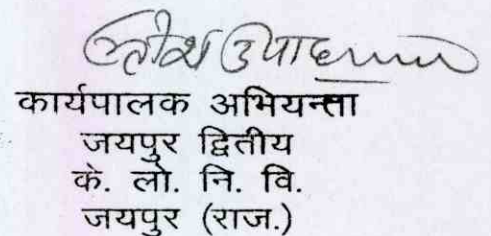 उपाध्याय
कार्यपालक अभियन्ता
जयपुर द्वितीय
के. लो. नि. वि.
जयपुर (राज.)